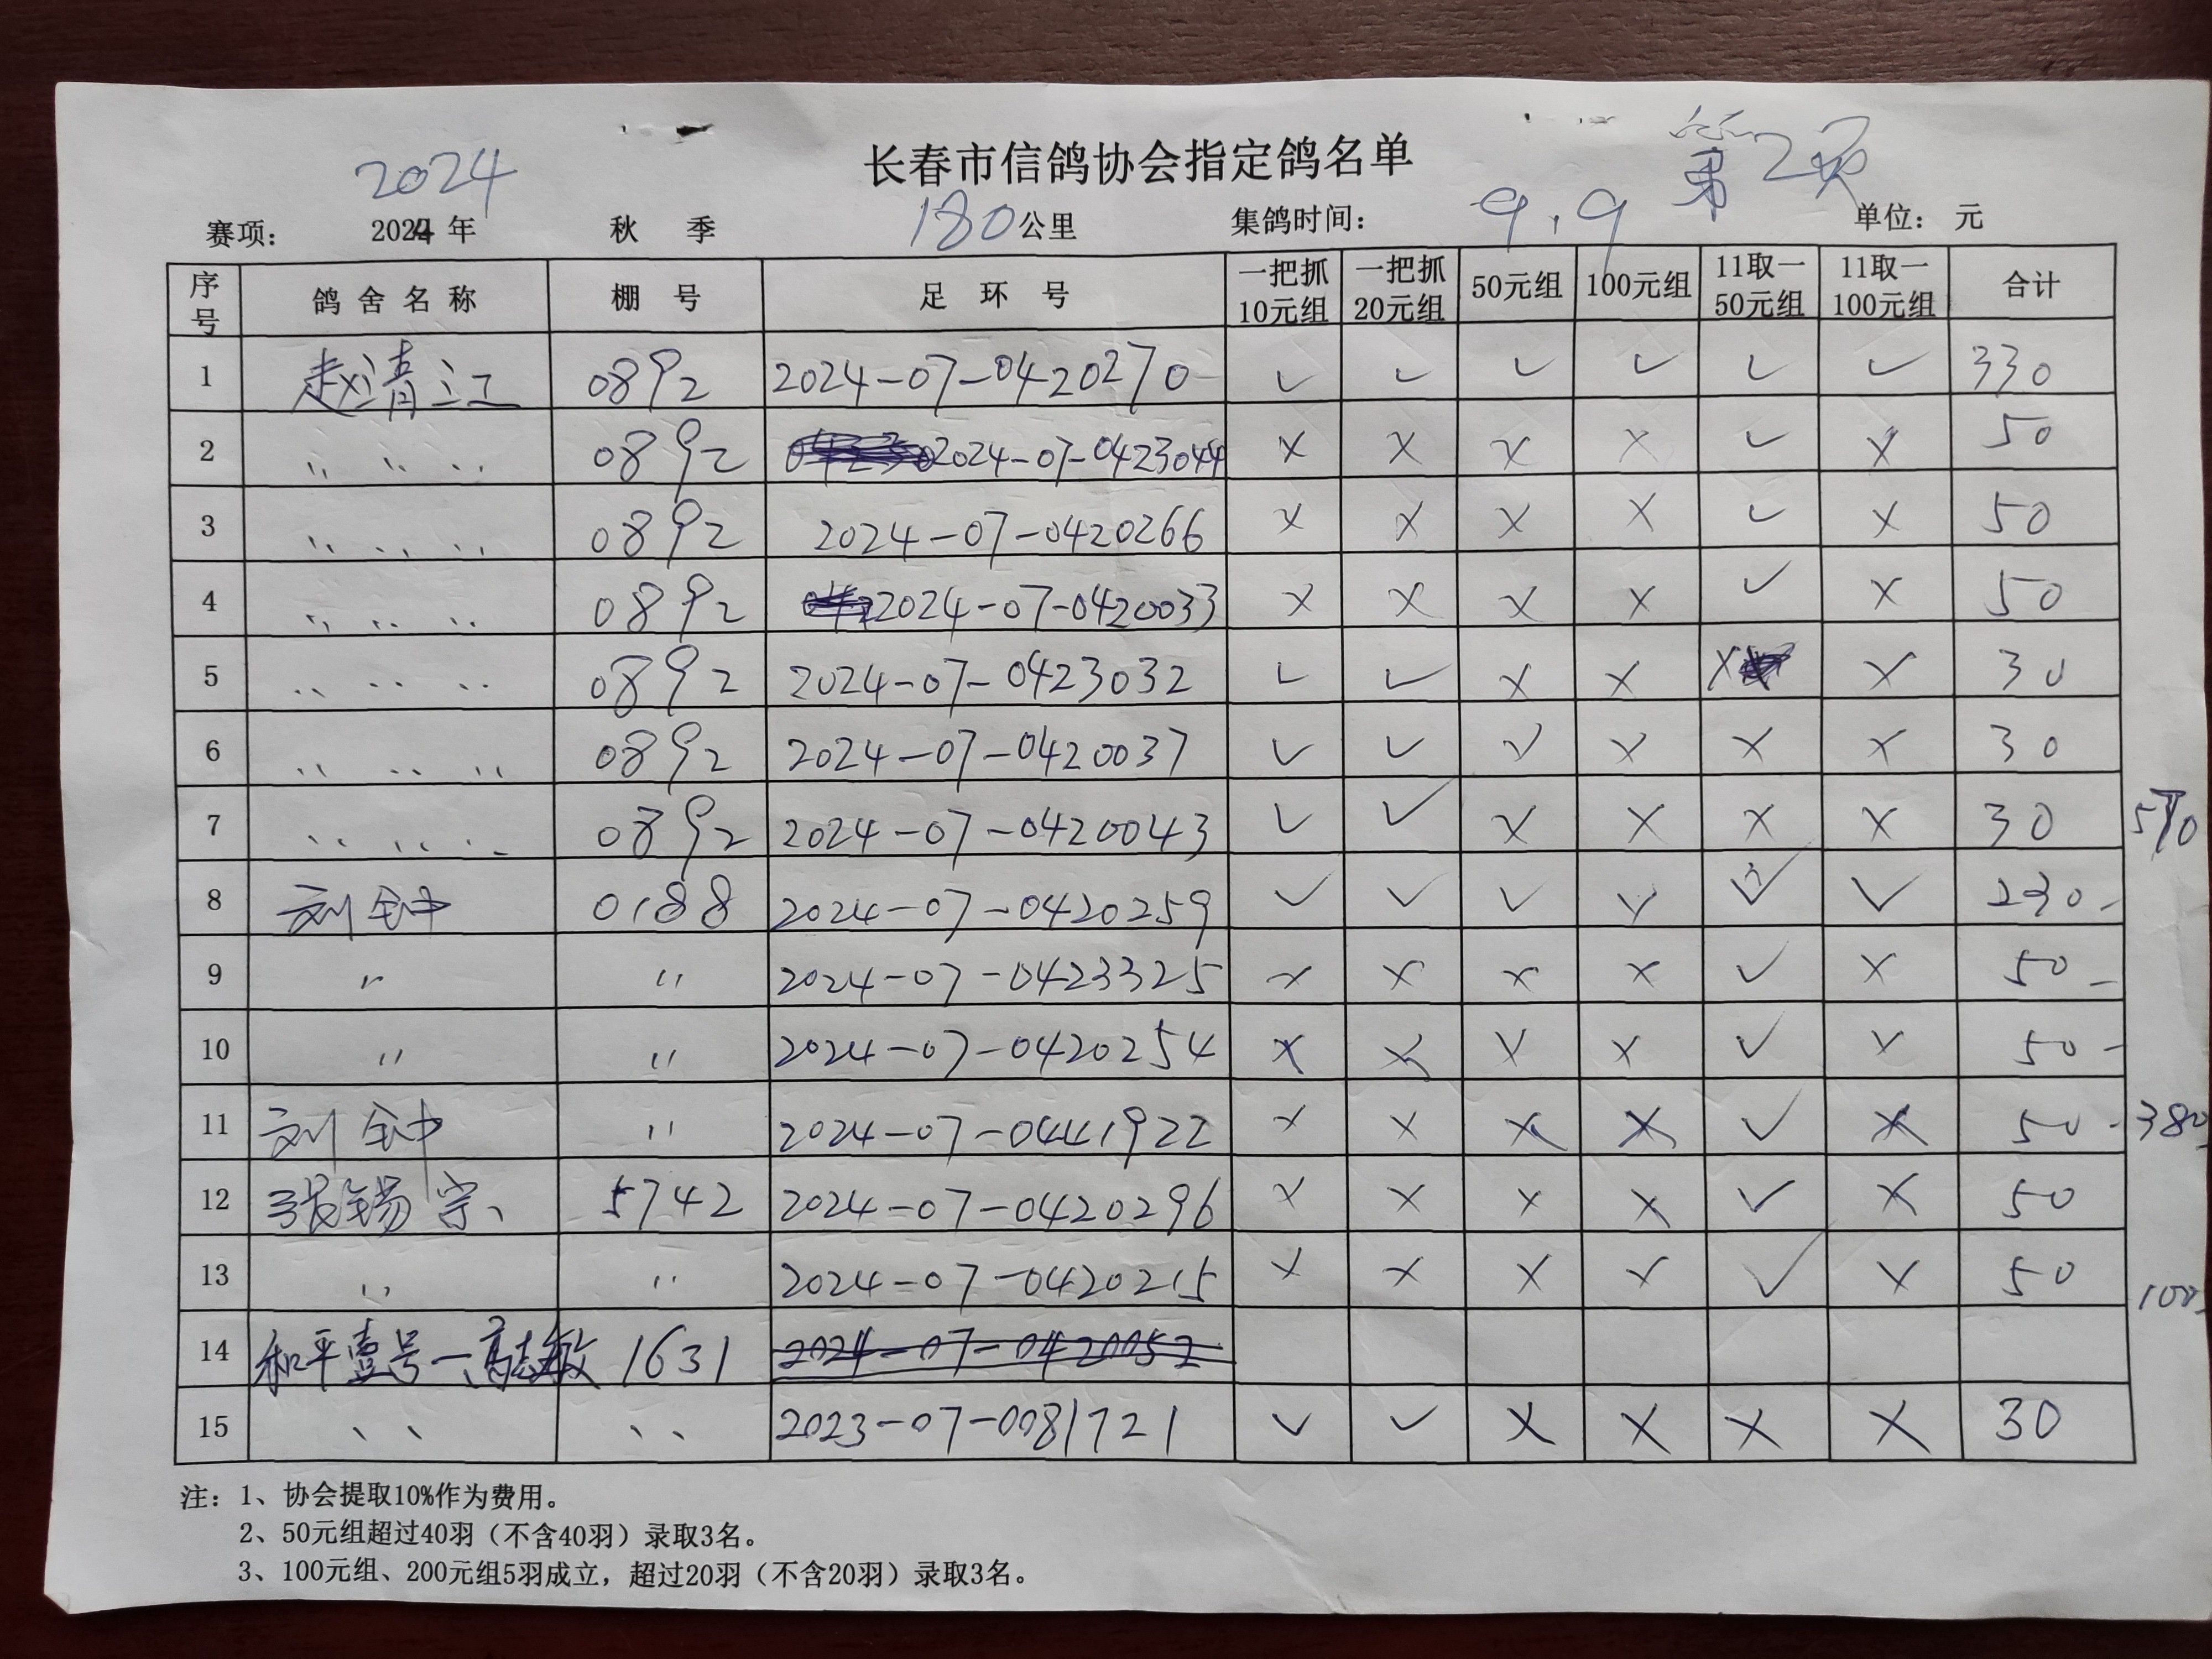 长春市信鸽协会指定鸽名单 第2页
2024
赛项： 2024年 秋 季 180公里 集鸽时间： 9.9 单位： 元
序号 鸽舍名称 棚号 足环号 一把抓10元组 一把抓20元组 50元组 100元组 11取一50元组 11取一100元组 合计
1 赵清江 0892 2024-07-0420270 ✓ ✓ ✓ ✓ ✓ ✓ 330
2 〃 〃 〃 0892 2024-07-0423044 × × × × ✓ × 50
3 〃 〃 〃 0892 2024-07-0420266 × × × × ✓ × 50
4 〃 〃 〃 0892 2024-07-0420033 × × × × ✓ × 50
5 〃 〃 〃 0892 2024-07-0423032 ✓ ✓ × × × × 30
6 〃 〃 〃 0892 2024-07-0420037 ✓ ✓ ✓ × × × 30
7 〃 〃 〃 0892 2024-07-0420043 ✓ ✓ × × × × 30
8 刘钟 0188 2024-07-0420259 ✓ ✓ ✓ ✓ ✓ ✓ 230-
9 〃 〃 2024-07-0423325 × × × × ✓ × 50-
10 〃 〃 2024-07-0420254 × × × × ✓ × 50-
11 刘钟 〃 2024-07-0441922 × × × × ✓ × 50- 380
12 张锡宗、 5742 2024-07-0420296 × × × × ✓ × 50
13 〃 〃 2024-07-0420215 × × × × ✓ × 50 100-
14 和平壹号-高志敏 1631 2024-07-0420052
15 〃 〃 2023-07-0081721 ✓ ✓ × × × × 30
注：1、协会提取10%作为费用。
2、50元组超过40羽（不含40羽）录取3名。
3、100元组、200元组5羽成立，超过20羽（不含20羽）录取3名。